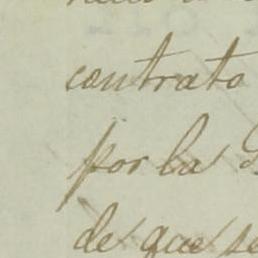 contrato
por la
de que se